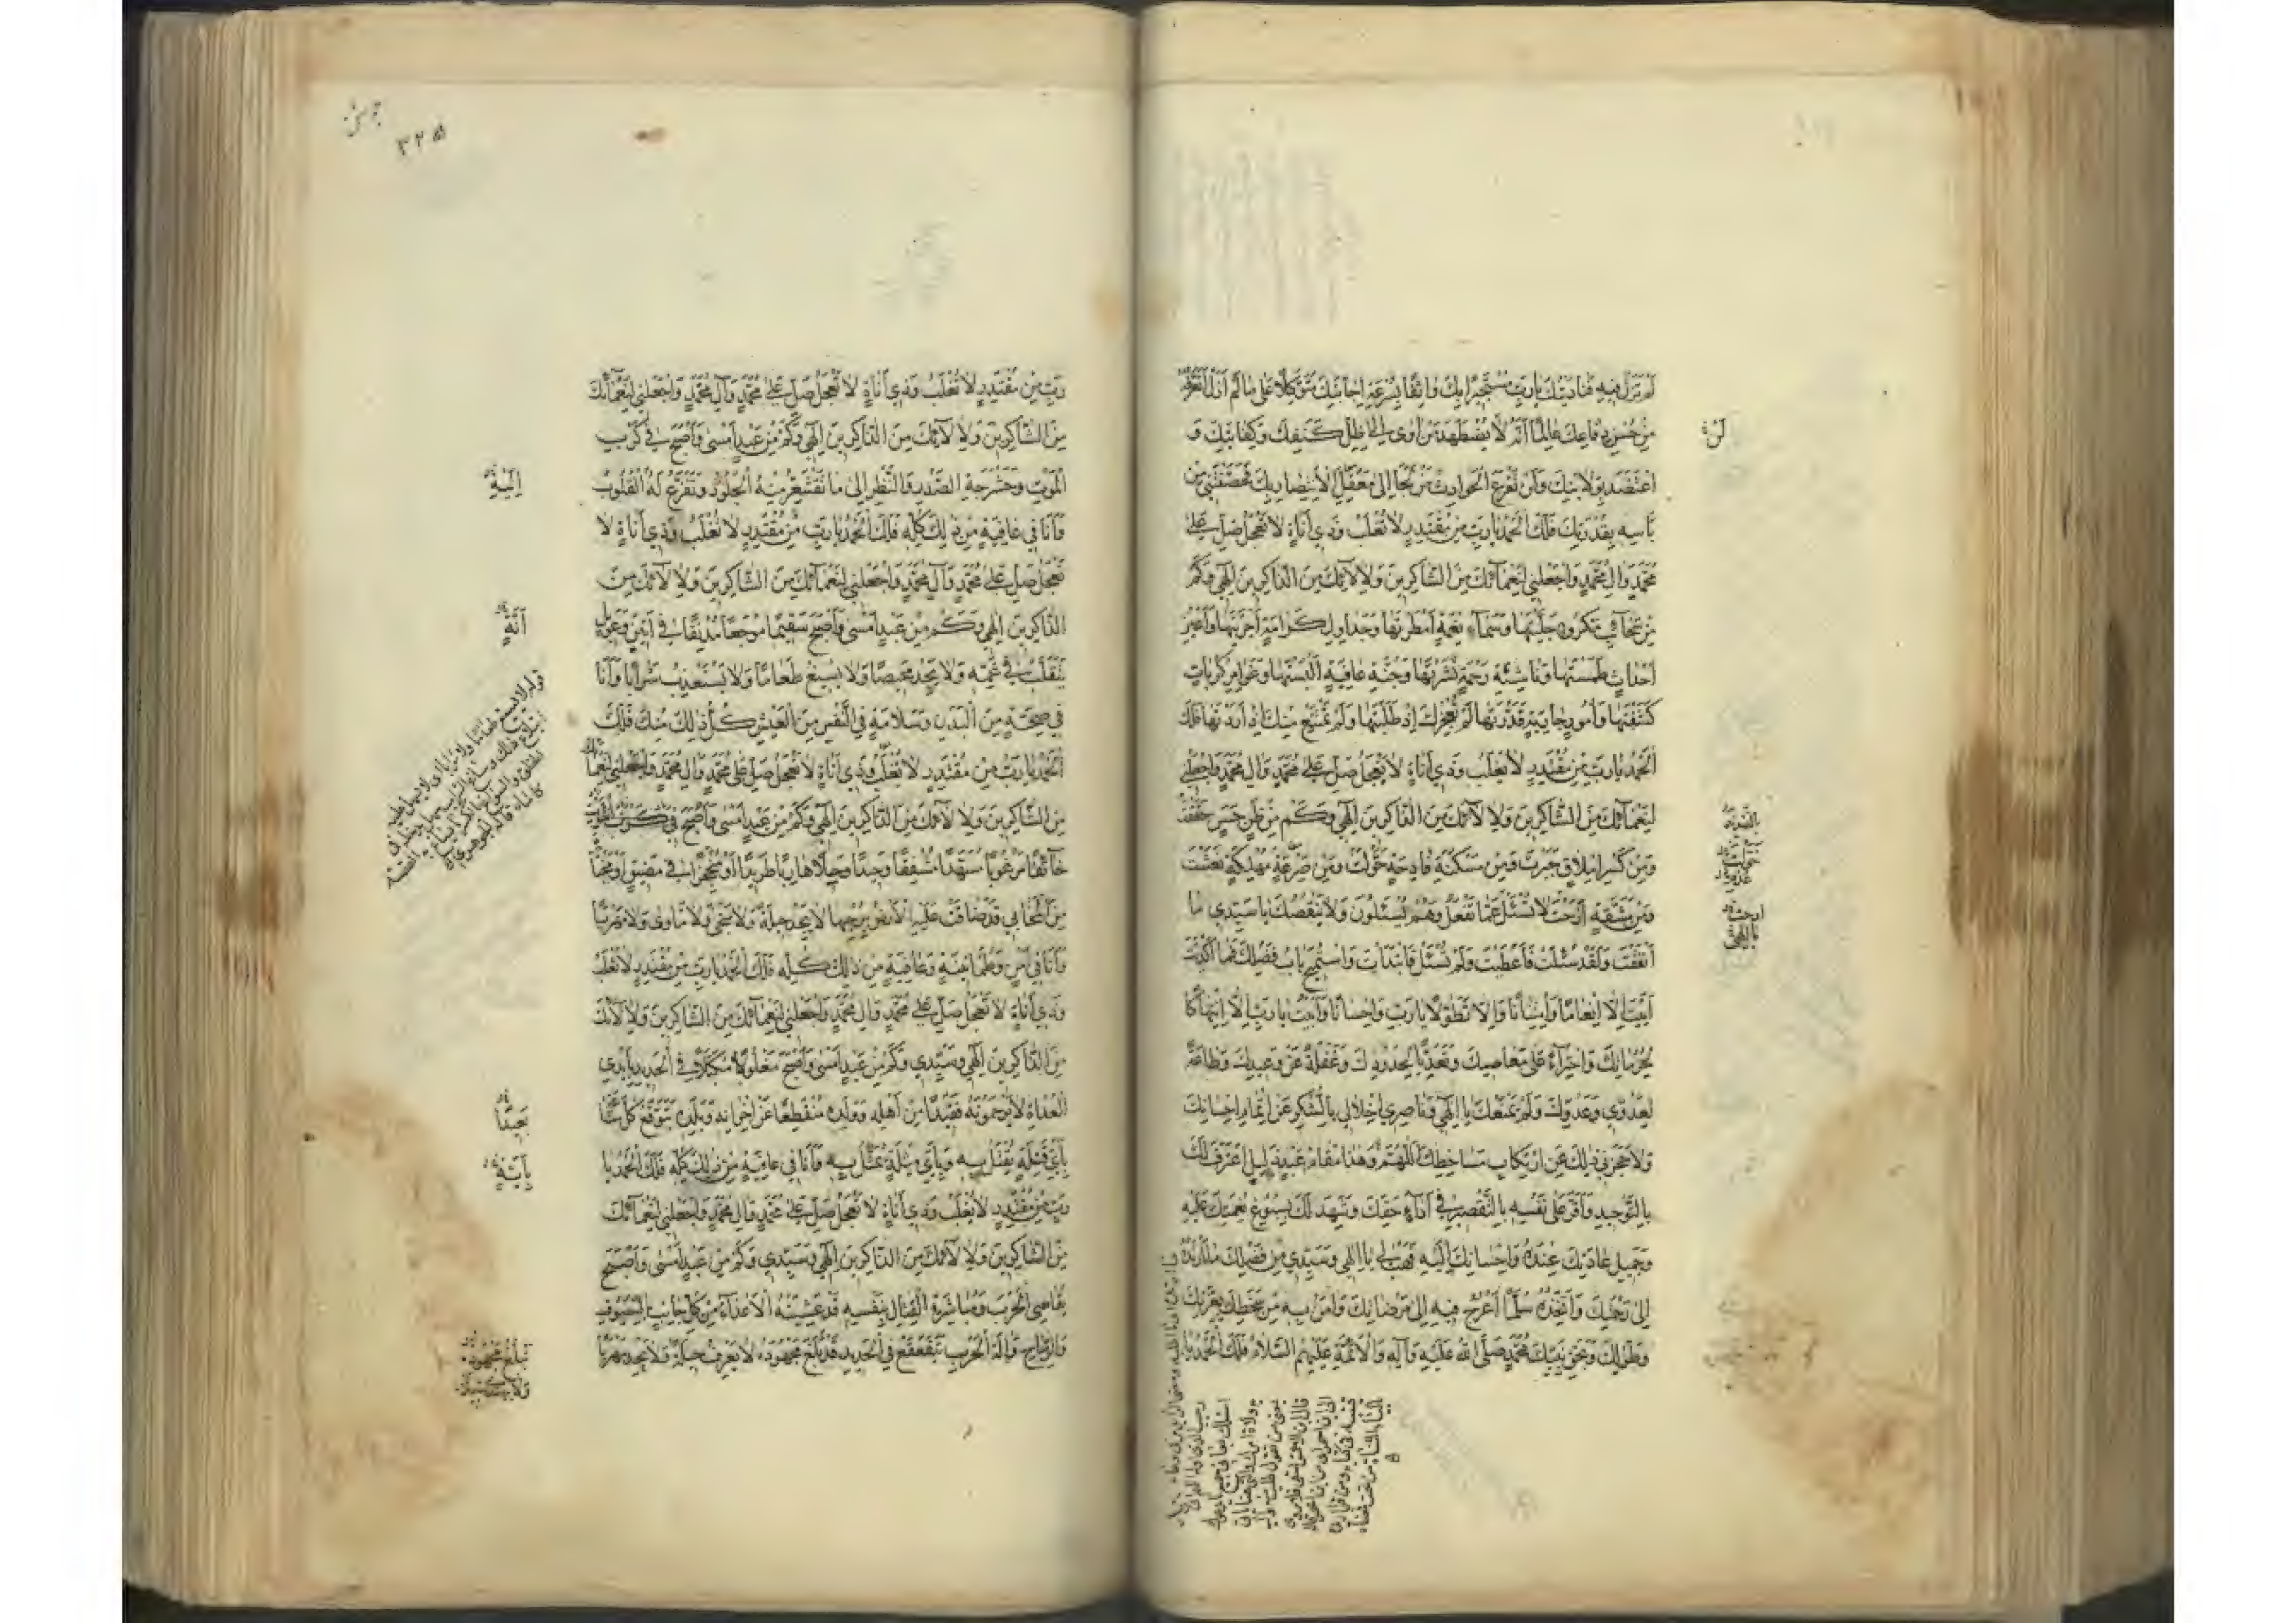 لَمْ تَزَلْ فِيهِ فَنَادَيْتُكَ يَا رَبِّ مُسْتَجِيرًا بِكَ وَاثِقًا بِسُرْعَةِ إِجَابَتِكَ مُتَوَكِّلًا عَلَى مَا لَمْ أَزَلْ أَتَعَرَّفُهُ
مِنْ حُسْنِ دِفَاعِكَ عَالِمًا أَنَّهُ لَا يُضْطَهَدُ مَنْ أَوَى إِلَى ظِلِّ كَنَفِكَ وَكِفَايَتِكَ وَ
لَنْ
اعْتَضَدَ بِوِلَايَتِكَ وَلَنْ تَقْرَعَ الْحَوَادِثُ مَنْ لَجَأَ إِلَى مَعْقِلِ الْإِنْتِصَارِ بِكَ فَحَصَّنْتَنِي مِنْ
بَأْسِهِ بِقُدْرَتِكَ فَلَكَ الْحَمْدُ يَا رَبِّ مِنْ مُقْتَدِرٍ لَا تُغْلَبُ وَذِي أَنَاةٍ لَا تَعْجَلُ صَلِّ عَلَى
مُحَمَّدٍ وَآلِ مُحَمَّدٍ وَاجْعَلْنِي لِنَعْمَائِكَ مِنَ الشَّاكِرِينَ وَلِآلَائِكَ مِنَ الذَّاكِرِينَ إِلَهِي وَكَمْ
مِنْ سَحَائِبِ مَكْرُوهٍ جَلَّيْتَهَا وَسَمَاءِ نِعْمَةٍ أَمْطَرْتَهَا وَجَدَاوِلِ كَرَامَةٍ أَجْرَيْتَهَا وَأَعْيُنِ
أَحْدَاثٍ طَمَسْتَهَا وَنَاشِئَةِ رَحْمَةٍ نَشَرْتَهَا وَجُنَّةِ عَافِيَةٍ أَلْبَسْتَهَا وَغَوَامِرِ كُرُبَاتٍ
كَشَفْتَهَا وَأُمُورٍ جَارِيَةٍ قَدَّرْتَهَا لَمْ تُعْجِزْكَ إِذْ طَلَبْتَهَا وَلَمْ تَمْتَنِعْ مِنْكَ إِذْ أَرَدْتَهَا فَلَكَ
الْحَمْدُ يَا رَبِّ مِنْ مُقْتَدِرٍ لَا يُغْلَبُ وَذِي أَنَاةٍ لَا يَعْجَلُ صَلِّ عَلَى مُحَمَّدٍ وَآلِ مُحَمَّدٍ وَاجْعَلْنِي
لِنَعْمَائِكَ مِنَ الشَّاكِرِينَ وَلِآلَائِكَ مِنَ الذَّاكِرِينَ إِلَهِي وَكَمْ مِنْ ظَنٍّ حَسَنٍ حَقَّقْتَ
وَمِنْ كَسْرِ إِمْلَاقٍ جَبَرْتَ وَمِنْ مَسْكَنَةٍ فَادِحَةٍ حَوَّلْتَ وَمِنْ صَرْعَةٍ مُهْلِكَةٍ نَعَشْتَ
وَمِنْ مَشَقَّةٍ أَرَحْتَ لَا تُسْئَلُ عَمَّا تَفْعَلُ وَهُمْ يُسْئَلُونَ وَلَا يَنْقُصُكَ يَا سَيِّدِي مَا
أَنْفَقْتَ وَلَقَدْ سُئِلْتَ فَأَعْطَيْتَ وَلَمْ تُسْئَلْ فَابْتَدَأْتَ وَاسْتُمِيحَ بَابُ فَضْلِكَ فَمَا أَكْدَيْتَ
أَبَيْتَ إِلَّا إِنْعَامًا وَامْتِنَانًا وَإِلَّا تَطَوُّلًا يَا رَبِّ وَإِحْسَانًا وَأَبَيْتُ يَا رَبِّ إِلَّا انْتِهَاكًا
لِحُرُمَاتِكَ وَاجْتِرَاءً عَلَى مَعَاصِيكَ وَتَعَدِّيًا لِحُدُودِكَ وَغَفْلَةً عَنْ وَعِيدِكَ وَطَاعَةً
لِعَدُوِّي وَعَدُوِّكَ وَلَمْ يَمْنَعْكَ يَا إِلَهِي وَنَاصِرِي إِخْلَالِي بِالشُّكْرِ عَنْ إِتْمَامِ إِحْسَانِكَ
وَلَا حَجَزَنِي ذَلِكَ عَنِ ارْتِكَابِ مَسَاخِطِكَ اللَّهُمَّ وَهَذَا مَقَامُ عَبْدٍ ذَلِيلٍ اعْتَرَفَ لَكَ
بِالتَّوْحِيدِ وَأَقَرَّ عَلَى نَفْسِهِ بِالتَّقْصِيرِ فِي أَدَاءِ حَقِّكَ وَشَهِدَ لَكَ بِسُبُوغِ نِعْمَتِكَ عَلَيْهِ
وَجَمِيلِ عَادَتِكَ عِنْدَهُ وَإِحْسَانِكَ إِلَيْهِ فَهَبْ لِي يَا إِلَهِي وَسَيِّدِي مِنْ فَضْلِكَ مَا أُرِيدُهُ
إِلَى رَحْمَتِكَ وَأَتَّخِذُهُ سُلَّمًا أَعْرُجُ فِيهِ إِلَى مَرْضَاتِكَ وَآمَنُ بِهِ مِنْ سَخَطِكَ بِعِزَّتِكَ
وَطَوْلِكَ وَبِحَقِّ نَبِيِّكَ مُحَمَّدٍ صَلَّى اللَّهُ عَلَيْهِ وَآلِهِ وَالْأَئِمَّةِ عَلَيْهِمُ السَّلَامُ فَلَكَ الْحَمْدُ يَا
٣٢٥
رَبِّ مِنْ مُقْتَدِرٍ لَا تُغْلَبُ وَذِي أَنَاةٍ لَا تَعْجَلُ صَلِّ عَلَى مُحَمَّدٍ وَآلِ مُحَمَّدٍ وَاجْعَلْنِي لِنَعْمَائِكَ
مِنَ الشَّاكِرِينَ وَلِآلَائِكَ مِنَ الذَّاكِرِينَ إِلَهِي وَكَمْ مِنْ عَبْدٍ أَمْسَى وَأَصْبَحَ فِي كَرْبِ
الْمَوْتِ وَحَشْرَجَةِ الصَّدْرِ وَالنَّظَرِ إِلَى مَا تَقْشَعِرُّ مِنْهُ الْجُلُودُ وَتَفْزَعُ لَهُ الْقُلُوبُ
إِلَيْهِ
وَأَنَا فِي عَافِيَةٍ مِنْ ذَلِكَ كُلِّهِ فَلَكَ الْحَمْدُ يَا رَبِّ مِنْ مُقْتَدِرٍ لَا تُغْلَبُ وَذِي أَنَاةٍ لَا
تَعْجَلُ صَلِّ عَلَى مُحَمَّدٍ وَآلِ مُحَمَّدٍ وَاجْعَلْنِي لِنَعْمَائِكَ مِنَ الشَّاكِرِينَ وَلِآلَائِكَ مِنَ
الذَّاكِرِينَ إِلَهِي وَكَمْ مِنْ عَبْدٍ أَمْسَى وَأَصْبَحَ سَقِيمًا مُوجَعًا مُدْنِفًا فِي أَنِينٍ وَعَوِيلٍ
أَنَّةٍ
يَتَقَلَّبُ فِي غَمِّهِ وَلَا يَجِدُ مَحِيصًا وَلَا يُسِيغُ طَعَامًا وَلَا يَسْتَعْذِبُ شَرَابًا وَأَنَا
فِي صِحَّةٍ مِنَ الْبَدَنِ وَسَلَامَةٍ فِي النَّفْسِ مِنَ الْعَيْشِ كُلُّ ذَلِكَ مِنْكَ فَلَكَ
الْحَمْدُ يَا رَبِّ مِنْ مُقْتَدِرٍ لَا تُغْلَبُ وَذِي أَنَاةٍ لَا تَعْجَلُ صَلِّ عَلَى مُحَمَّدٍ وَآلِ مُحَمَّدٍ وَاجْعَلْنِي لِنَعْمَائِكَ
مِنَ الشَّاكِرِينَ وَلِآلَائِكَ مِنَ الذَّاكِرِينَ إِلَهِي وَكَمْ مِنْ عَبْدٍ أَمْسَى وَأَصْبَحَ فِي كَرْبِ الْمَوْتِ
خَائِفًا مَرْعُوبًا مُسَهَّدًا مُشْفِقًا وَحِيدًا وَجِلًا هَارِبًا طَرِيدًا أَوْ مُنْحَجِزًا فِي مَضِيقٍ أَوْ مَخْبَأَةٍ
مِنَ الْمَخَابِي قَدْ ضَاقَتْ عَلَيْهِ الْأَرْضُ بِرُحْبِهَا لَا يَجِدُ حِيلَةً وَلَا مَنْجًى وَلَا مَأْوًى وَلَا مَهْرَبًا
وَأَنَا فِي أَمْنٍ وَطُمَأْنِينَةٍ وَعَافِيَةٍ مِنْ ذَلِكَ كُلِّهِ فَلَكَ الْحَمْدُ يَا رَبِّ مِنْ مُقْتَدِرٍ لَا تُغْلَبُ
وَذِي أَنَاةٍ لَا تَعْجَلُ صَلِّ عَلَى مُحَمَّدٍ وَآلِ مُحَمَّدٍ وَاجْعَلْنِي لِنَعْمَائِكَ مِنَ الشَّاكِرِينَ وَلِآلَائِكَ
مِنَ الذَّاكِرِينَ إِلَهِي وَسَيِّدِي وَكَمْ مِنْ عَبْدٍ أَمْسَى وَأَصْبَحَ مَغْلُولًا مُكَبَّلًا فِي الْحَدِيدِ بِأَيْدِي
الْعُدَاةِ لَا يَرْحَمُونَهُ فَقِيدًا مِنْ أَهْلِهِ وَوَلَدِهِ مُنْقَطِعًا عَنْ إِخْوَانِهِ وَبَلَدِهِ يَتَوَقَّعُ كُلَّ سَاعَةٍ
بِأَيِّ قِتْلَةٍ يُقْتَلُ بِهِ وَبِأَيِّ مُثْلَةٍ يُمَثَّلُ بِهِ وَأَنَا فِي عَافِيَةٍ مِنْ ذَلِكَ كُلِّهِ فَلَكَ الْحَمْدُ يَا
بِأَيَّةِ
رَبِّ مِنْ مُقْتَدِرٍ لَا يُغْلَبُ وَذِي أَنَاةٍ لَا تَعْجَلُ صَلِّ عَلَى مُحَمَّدٍ وَآلِ مُحَمَّدٍ وَاجْعَلْنِي لِنَعْمَائِكَ
مِنَ الشَّاكِرِينَ وَلِآلَائِكَ مِنَ الذَّاكِرِينَ إِلَهِي وَسَيِّدِي وَكَمْ مِنْ عَبْدٍ أَمْسَى وَأَصْبَحَ
يُقَاسِي الْحَرْبَ وَمُبَاشَرَةَ الْقِتَالِ بِنَفْسِهِ قَدْ غَشِيَتْهُ الْأَعْدَاءُ مِنْ كُلِّ جَانِبٍ بِالسُّيُوفِ
وَالرِّمَاحِ وَآلَةِ الْحَرْبِ يَتَقَعْقَعُ فِي الْحَدِيدِ قَدْ بَلَغَ مَجْهُودَهُ لَا يَعْرِفُ حِيلَةً وَلَا يَجِدُ مَهْرَبًا